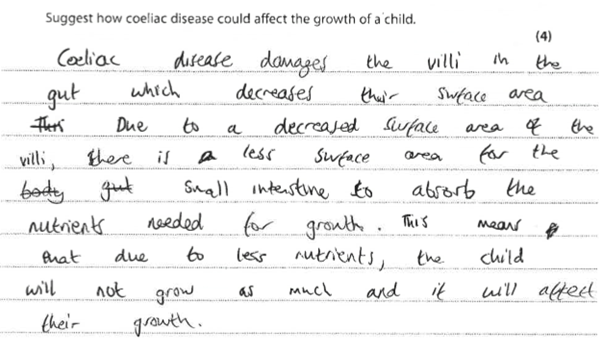 Suggest how coeliac disease could affect the growth of a child.
(4)
Coeliac disease damages the villi in the
gut which decreases their surface area
Due to a decreased surface area of the
villi, there is a less surface area for the
small intenstine to absorb the
nutrients needed for growth. This means
that due to less nutrients, the child
will not grow as much and it will affect
their growth.